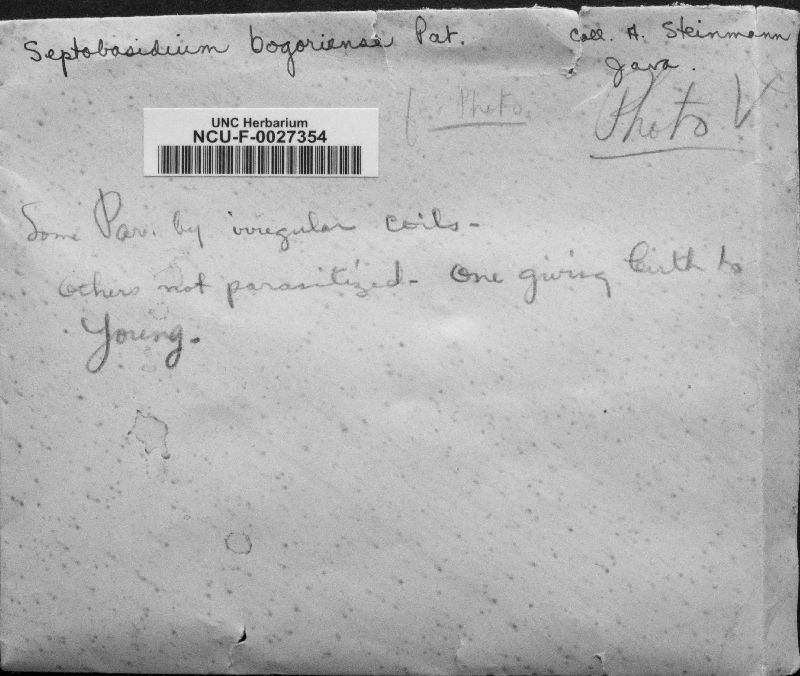 Septobasidium bogoriense Pat.
Coll. A. Steinmann
Java.
Photo.
Photo V
UNC Herbarium
NCU-F-0027354
Some Par. by irregular coils-
others not parasitized- One giving birth to
Young.